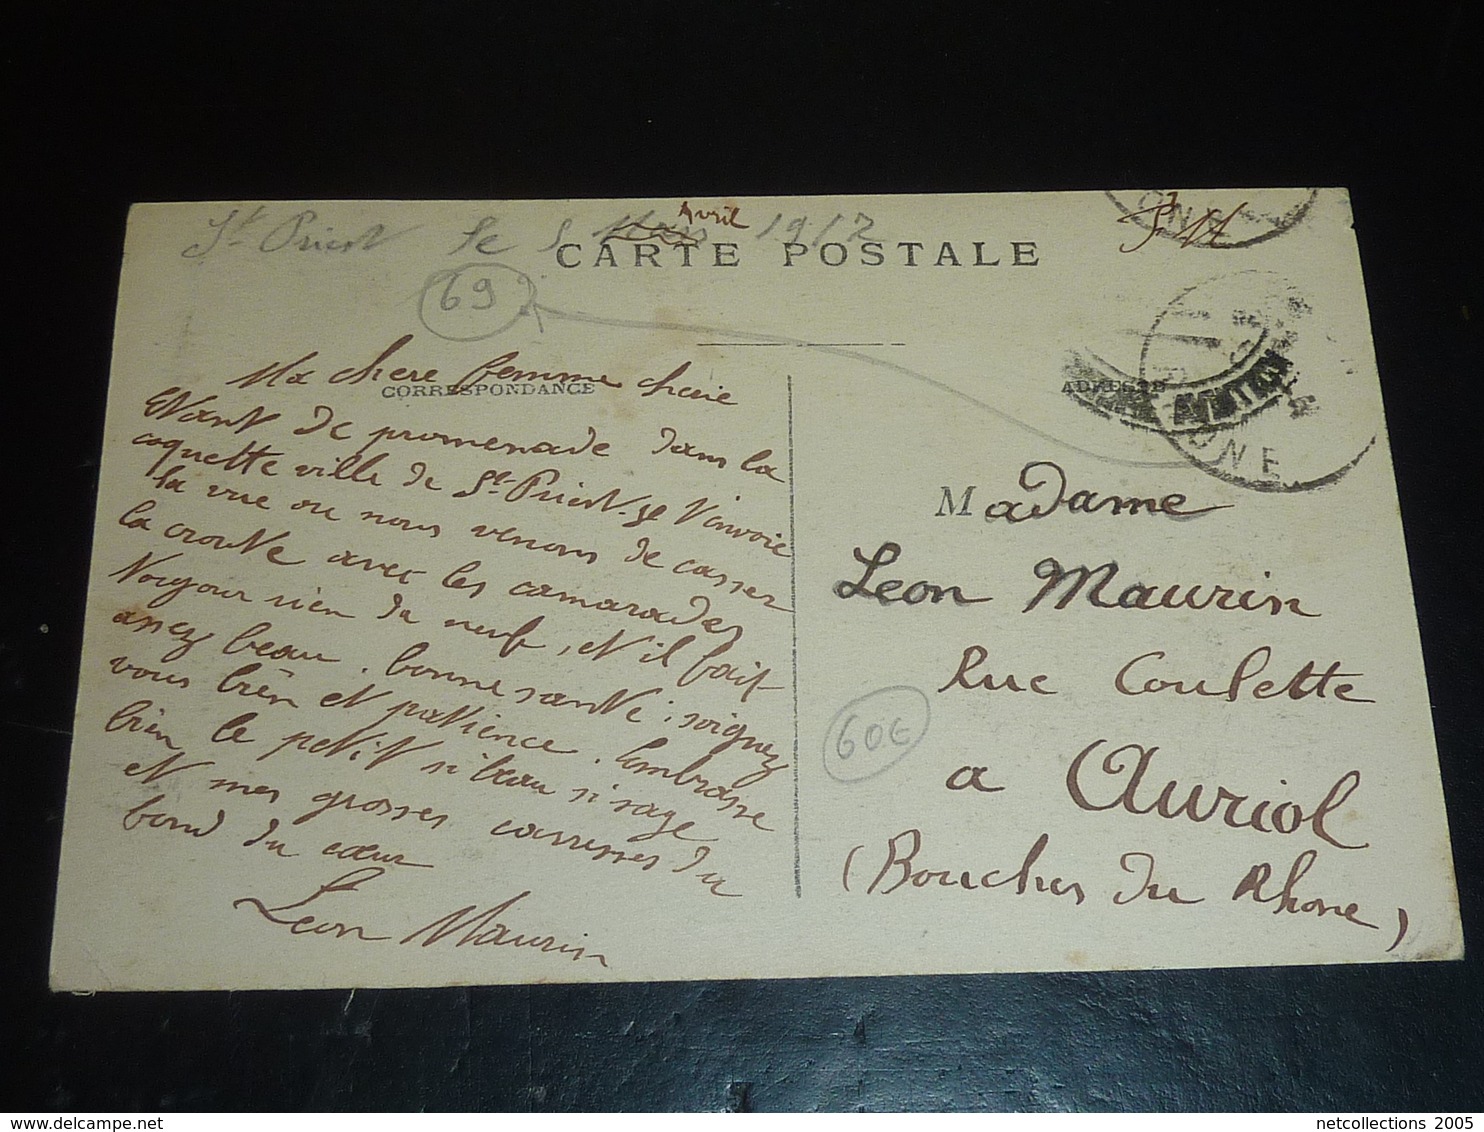 St Priest le 5 Mars Avril 1917
F.M
CARTE POSTALE
69
CORRESPONDANCE
ADRESSE
Ma chere femme cherie
Etant de promenade dans la
coquette ville de St Priest je t'envoie
la vue ou nous venons de casser
la croute avec les camarades
Toujour rien de neuf, et il fait
assez beau. bonne sante; soignez
vous bien et patience. Embrasse
bien le petit si beau si sage
et mes grosses carresses du
fond du cœur
Leon Maurin
Madame
Leon Maurin
Rue Coulette
a Auriol
(Bouches du Rhone)
60€
netcollections 2005